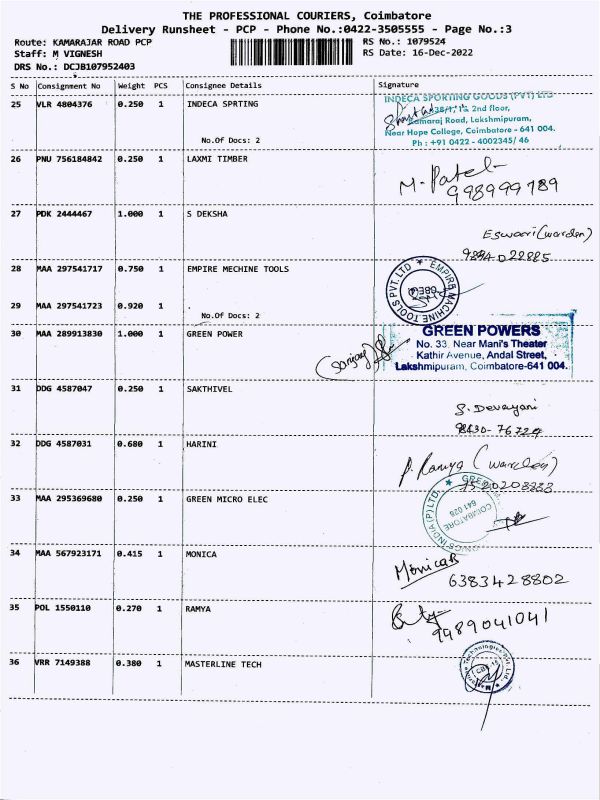 THE PROFESSIONAL COURIERS, Coimbatore
Delivery Runsheet - PCP - Phone No.:0422-3505555 - Page No.:3
Route: KAMARAJAR ROAD PCP
RS No.: 1079524
Staff: M VIGNESH
RS Date: 16-Dec-2022
DRS No.: DCJB107952403
S No Consignment No Weight PCS Consignee Details Signature
25 VLR 4804376 0.250 1 INDECA SPRTING
No.Of Docs: 2
INDECA SPORTING GOODS (PVT) LTD
2nd floor,
Kamaraj Road, Lakshmipuram,
Near Hope College, Coimbatore - 641 004.
Ph : +91 0422 - 4002345/ 46
26 PNU 756184842 0.250 1 LAXMI TIMBER
M. Patel
998999789
27 PDK 2444467 1.000 1 S DEKSHA
Eswari (warden)
28 MAA 297541717 0.750 1 EMPIRE MECHINE TOOLS
EMPIRE MACHINE TOOLS PVT. LTD
29 MAA 297541723 0.920 1
No.Of Docs: 2
30 MAA 289913830 1.000 1 GREEN POWER
(Sanjay)
GREEN POWERS
No. 33, Near Mani's Theater
Kathir Avenue, Andal Street,
Lakshmipuram, Coimbatore-641 004.
31 DDG 4587047 0.250 1 SAKTHIVEL
S. Devayani
32 DDG 4587031 0.680 1 HARINI
P. Ramya (warden)
33 MAA 295369680 0.250 1 GREEN MICRO ELEC
COIMBATORE
641 028
34 MAA 567923171 0.415 1 MONICA
Monica
6383428802
35 POL 1550110 0.270 1 RAMYA
9489041041
36 VRR 7149388 0.380 1 MASTERLINE TECH